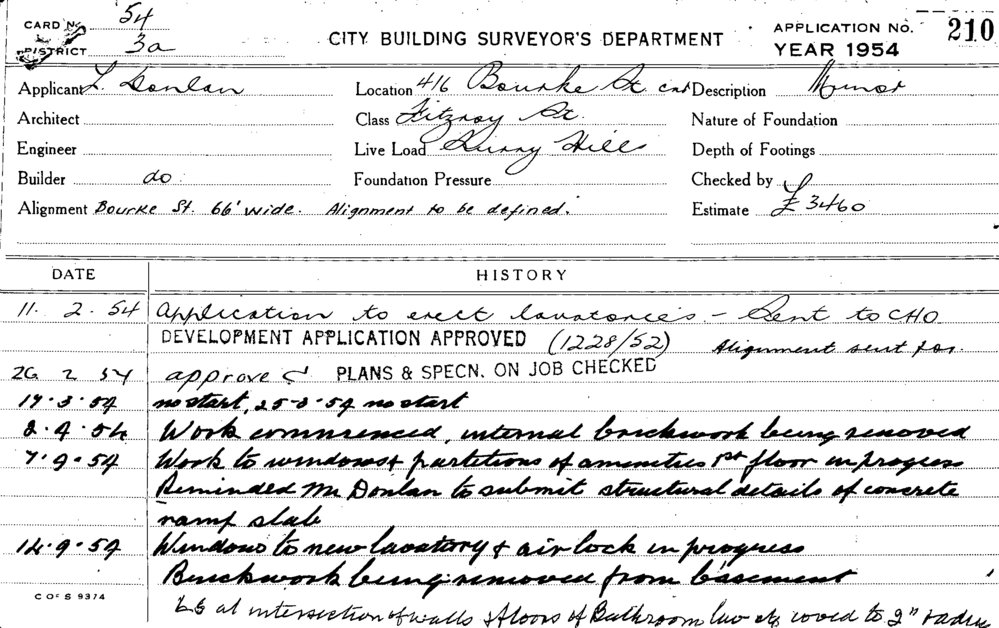 CARD No. 54
DISTRICT 3a
CITY BUILDING SURVEYOR'S DEPARTMENT
APPLICATION NO. 210
YEAR 1954
Applicant L. Donlan Location 416 Bourke St. cnr Description Minor
Architect Class Fitzroy St. Nature of Foundation
Engineer Live Load Surry Hills Depth of Footings
Builder do Foundation Pressure Checked by
Alignment Bourke St. 66' wide. Alignment to be defined. Estimate £3460
DATE HISTORY
11. 2. 54 Application to erect lavatories - Sent to CHO.
DEVELOPMENT APPLICATION APPROVED (1228/52) Alignment sent for.
26 2 54 approved PLANS & SPECN. ON JOB CHECKED
17.3.54 no start, 25-3-54 no start
2.4.54 Work commenced, internal brickwork being removed
7.9.54 Work to windows & partitions of amenities 1st floor in progress
Reminded Mr Donlan to submit structural details of concrete
ramp slab
14.9.54 Windows to new lavatory & air lock in progress
Brickwork being removed from basement
C OF S 9374
at intersection of walls & floors of Bathroom lav etc coved to 2" radius